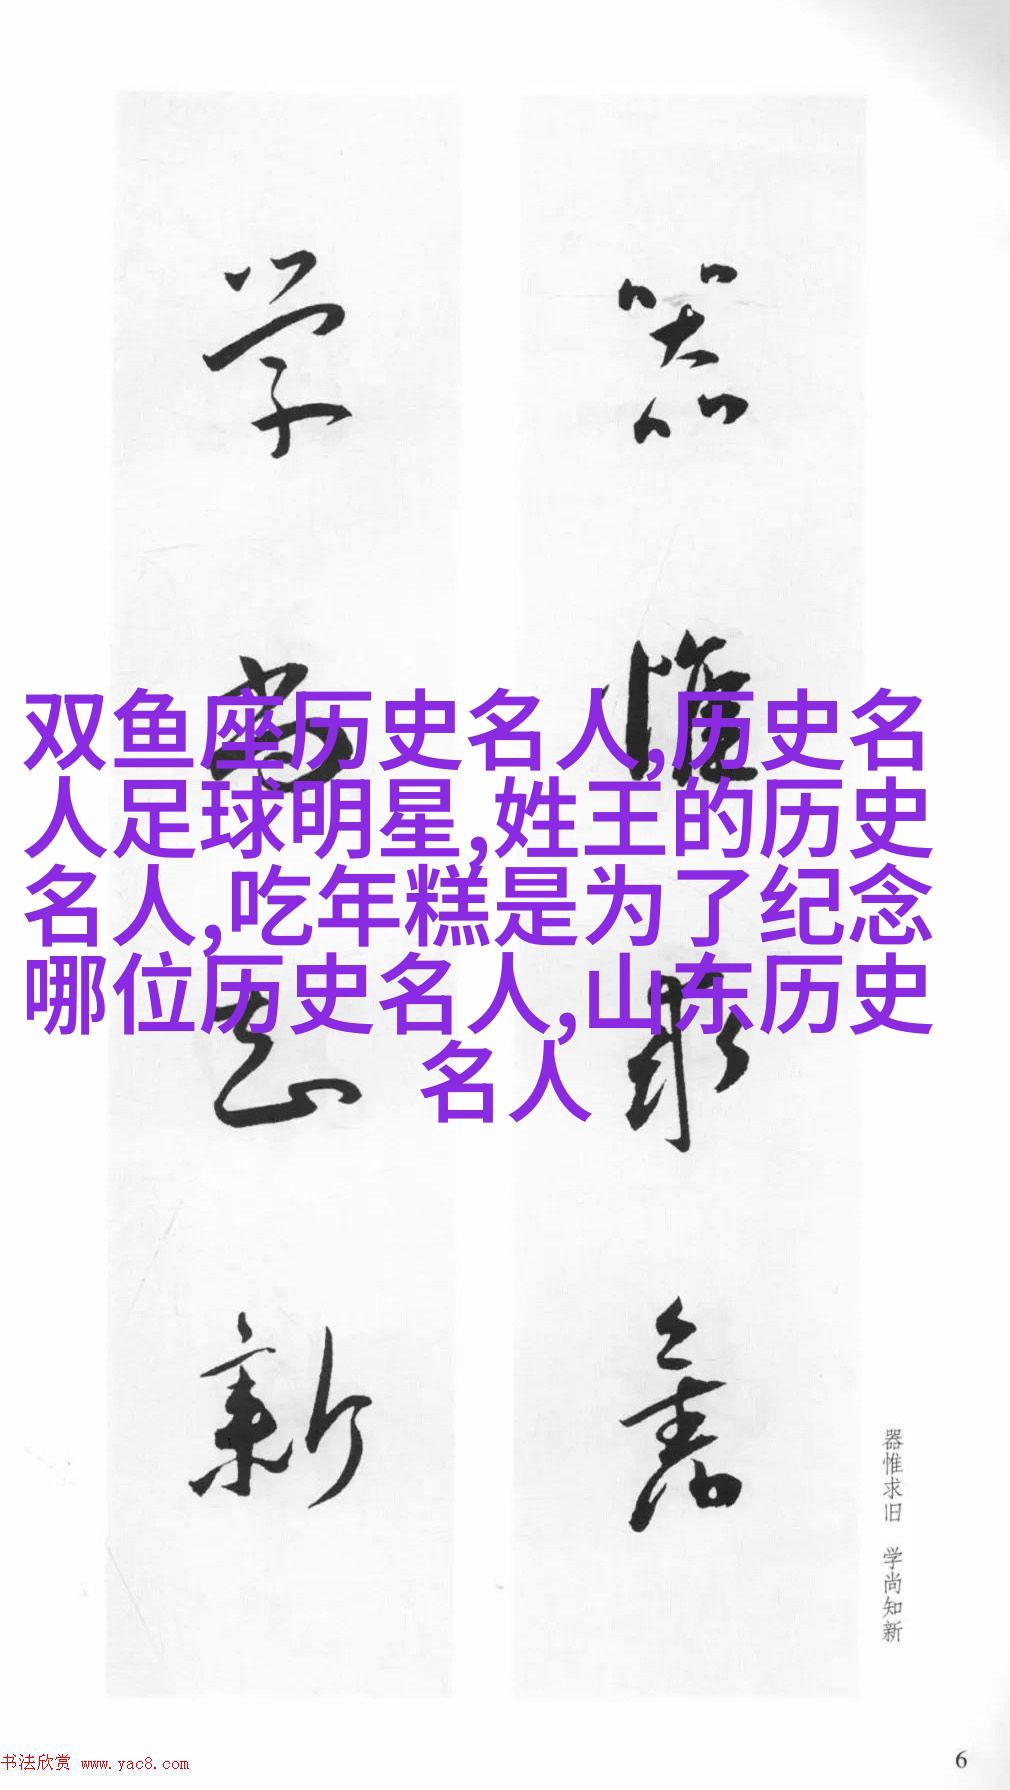 双鱼座历史名人,历史名
人足球明星,姓王的历史
名人,吃年糕是为了纪念
哪位历史名人,山东历史
名人
器惟求舊
学尚知新
器惟求旧 学尚知新
书法欣赏 www.yac8.com
6